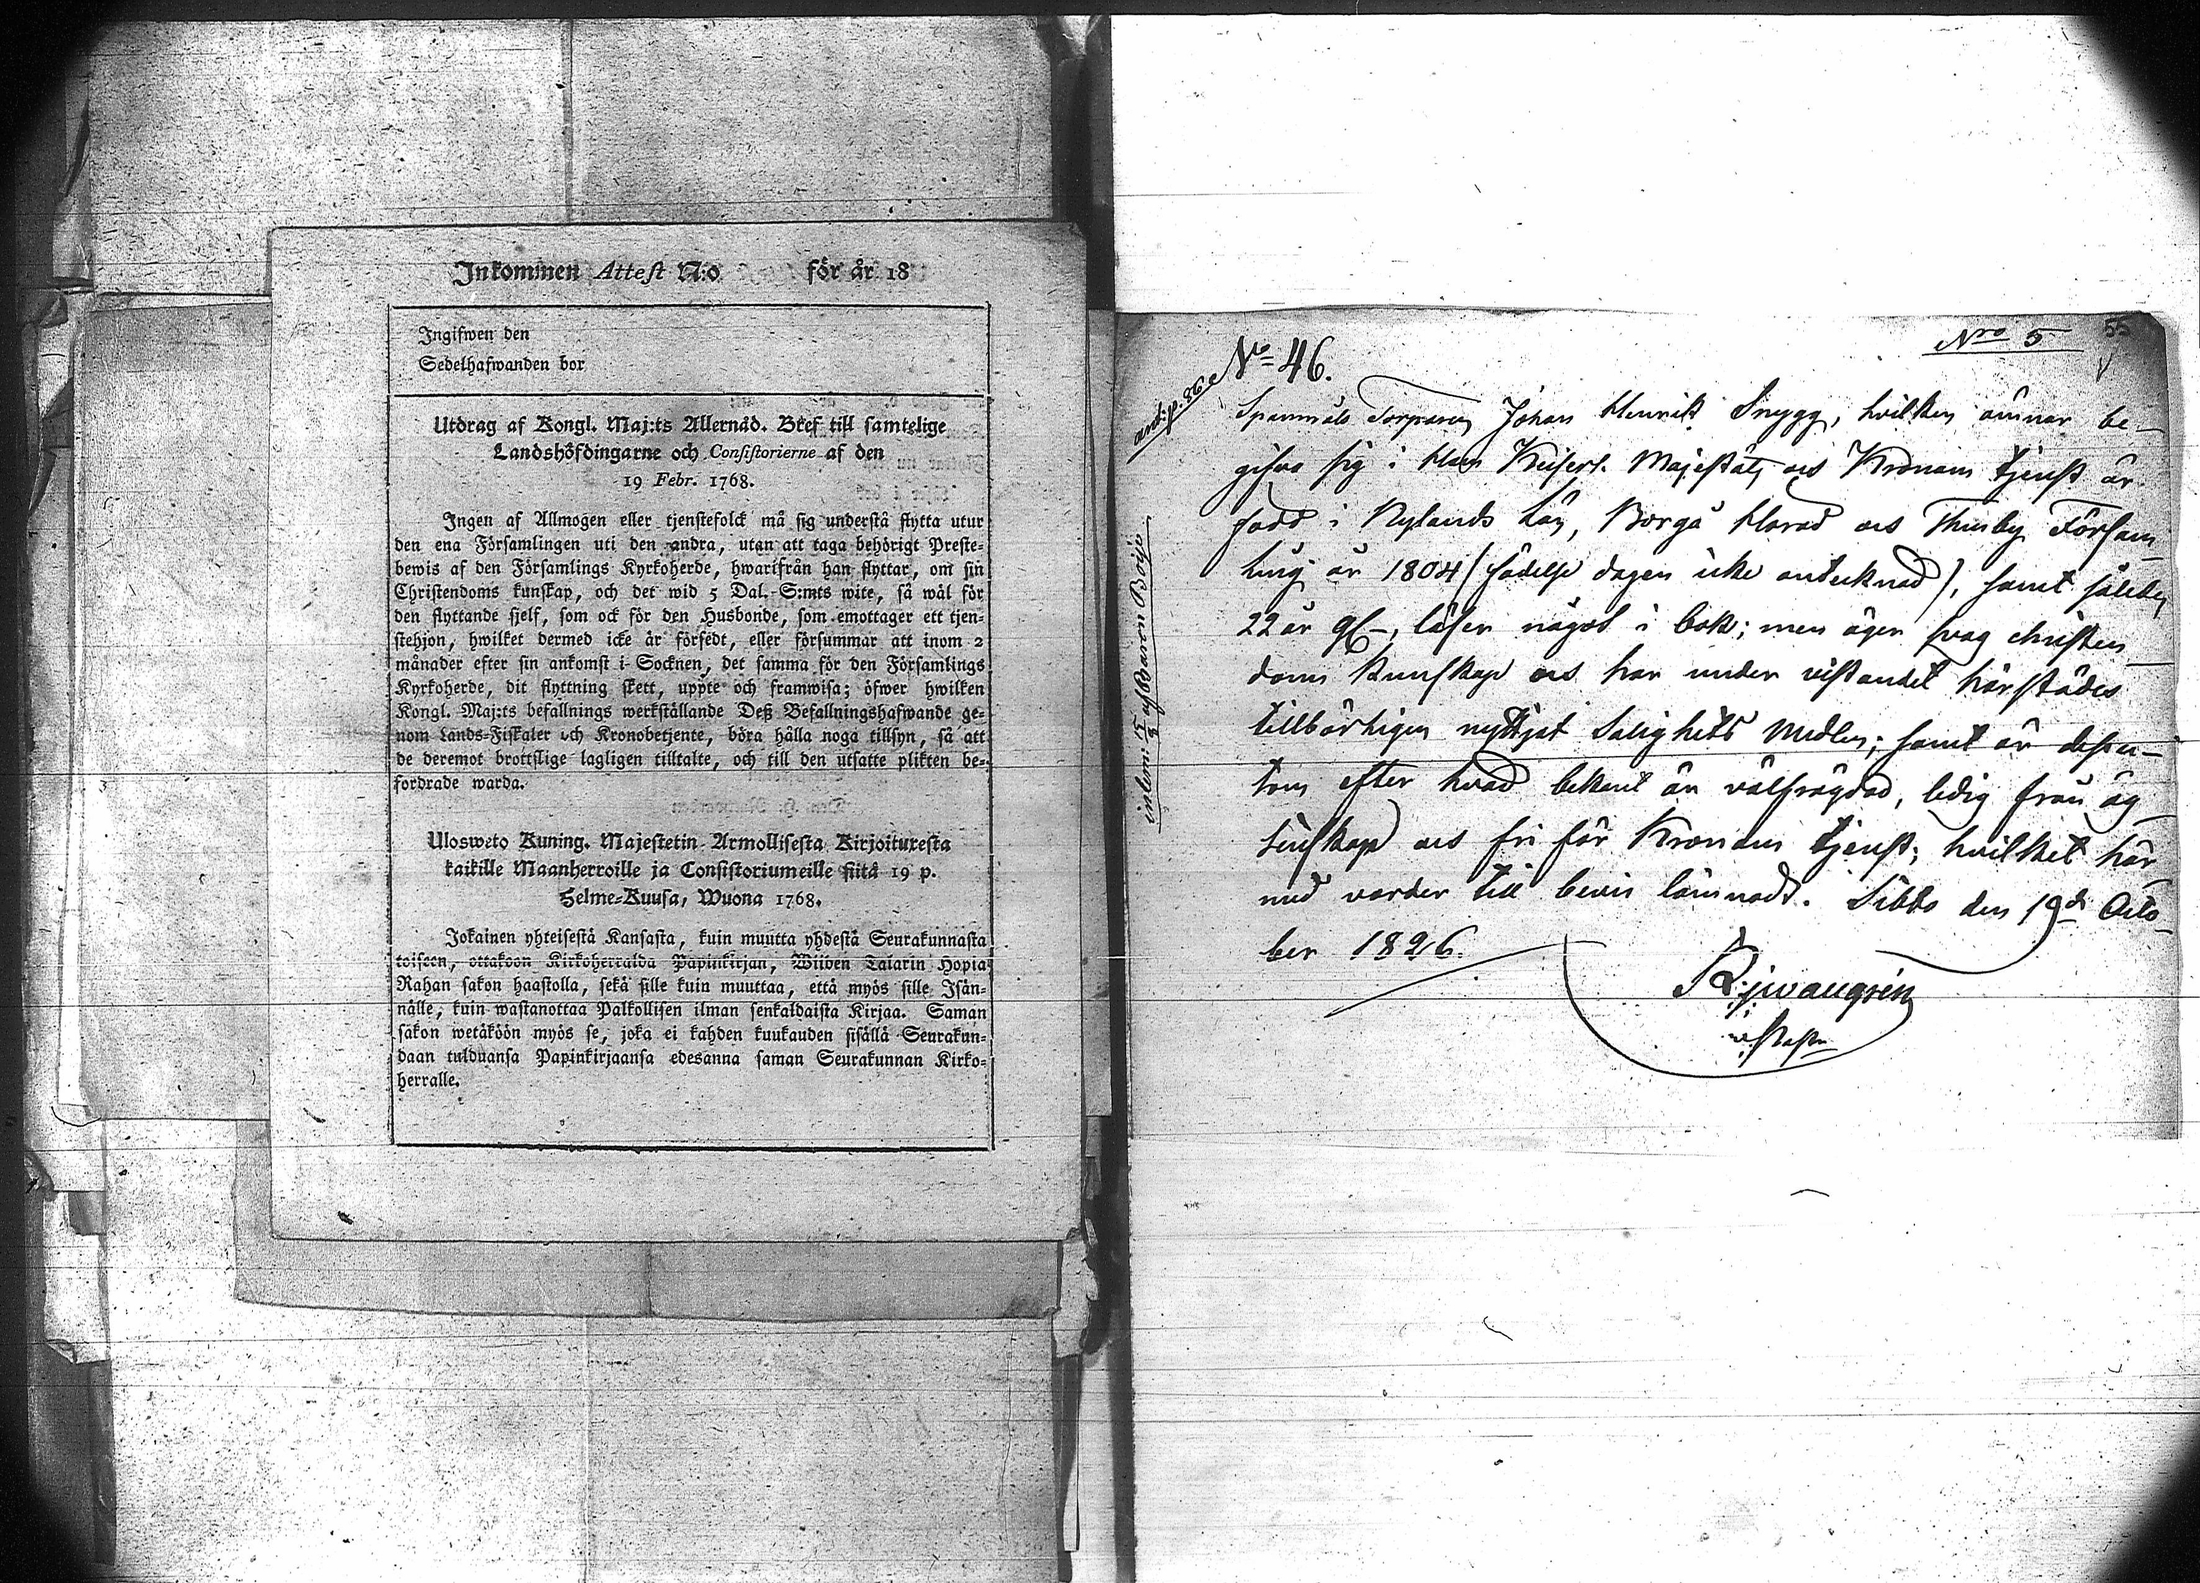 Inkommen Attest N:o för år 18
Ingifwen den
Sedelhafwanden bor
Utdrag af Kongl. Maj:ts Allernåd. Bref till samtelige
Landshöfdingarne och Consistorierne af den
19 Febr. 1768.
Ingen af Allmogen eller tjenstefolck må sig understå flytta utur
den ena Församlingen uti den andra, utan att taga behörigt Preste-
bewis af den Församlings Kyrkoherde, hwarifrån han flyttar, om sin
Christendoms kunskap, och det wid 5 Dal. S:mts wite, så wäl för
den flyttande sjelf, som ock för den Husbonde, som emottager ett tjen-
stehjon, hwilket dermed icke är försedt, eller försummar att inom 2
månader efter sin ankomst i Socknen, det samma för den Församlings
Kyrkoherde, dit flyttning skett, uppte och framwisa; öfwer hwilken
Kongl. Maj:ts befallnings werkställande Deß Befallningshafwande ge-
nom Lands-Fiskaler och Kronobetjente, böra hålla noga tillsyn, så att
de deremot brottslige lagligen tilltalte, och till den utsatte plikten be-
fordrade warda.
Ulosweto Kuning. Majestetin Armollisesta Kirjoituxesta
kaikille Maanherroille ja Consistoriumeille siitä 19 p.
Helme-Kuusa, Wuona 1768.
Jokainen yhteisestä Kansasta, kuin muutta yhdestä Seurakunnasta
toiseen, ottakoon Kirkoherralda Papinkirjan, Wiiden Talarin Hopia
Rahan sakon haastolla, sekä sille kuin muuttaa, että myös sille Isän-
nälle, kuin wastanottaa Palkollisen ilman senkaldaista Kirjaa. Saman
sakon wetäköön myös se, joka ei kahden kuukauden sisällä Seurakun-
daan tulduansa Papinkirjaansa edesanna saman Seurakunnan Kirko-
herralle.
55
Nro 5
No 46.
Spannsåls Torparen Johan Henrik Snygg, hvilken ämnar be-
gifva sig i Hans Keiserl. Majestäts ock Kronans tjenst är
född i Nylands Län, Borgå Härad ock Thusby Försam
ling år 1804 (födelse dagen icke antecknad), samt således
22 år gl, läser något i bok; men äger svag christen
doms kunskap ock har under vistandet härstädes
tillbörligen nyttjat Salighets Medlen; samt är dessu-
tom efter hvad bekant är välfrägdad, ledig från äg
tenskap ock fri för Kronans tjenst; hvilket här
med varder till bevis lämnadt. Sibbo den 19de Octo
ber 1826.